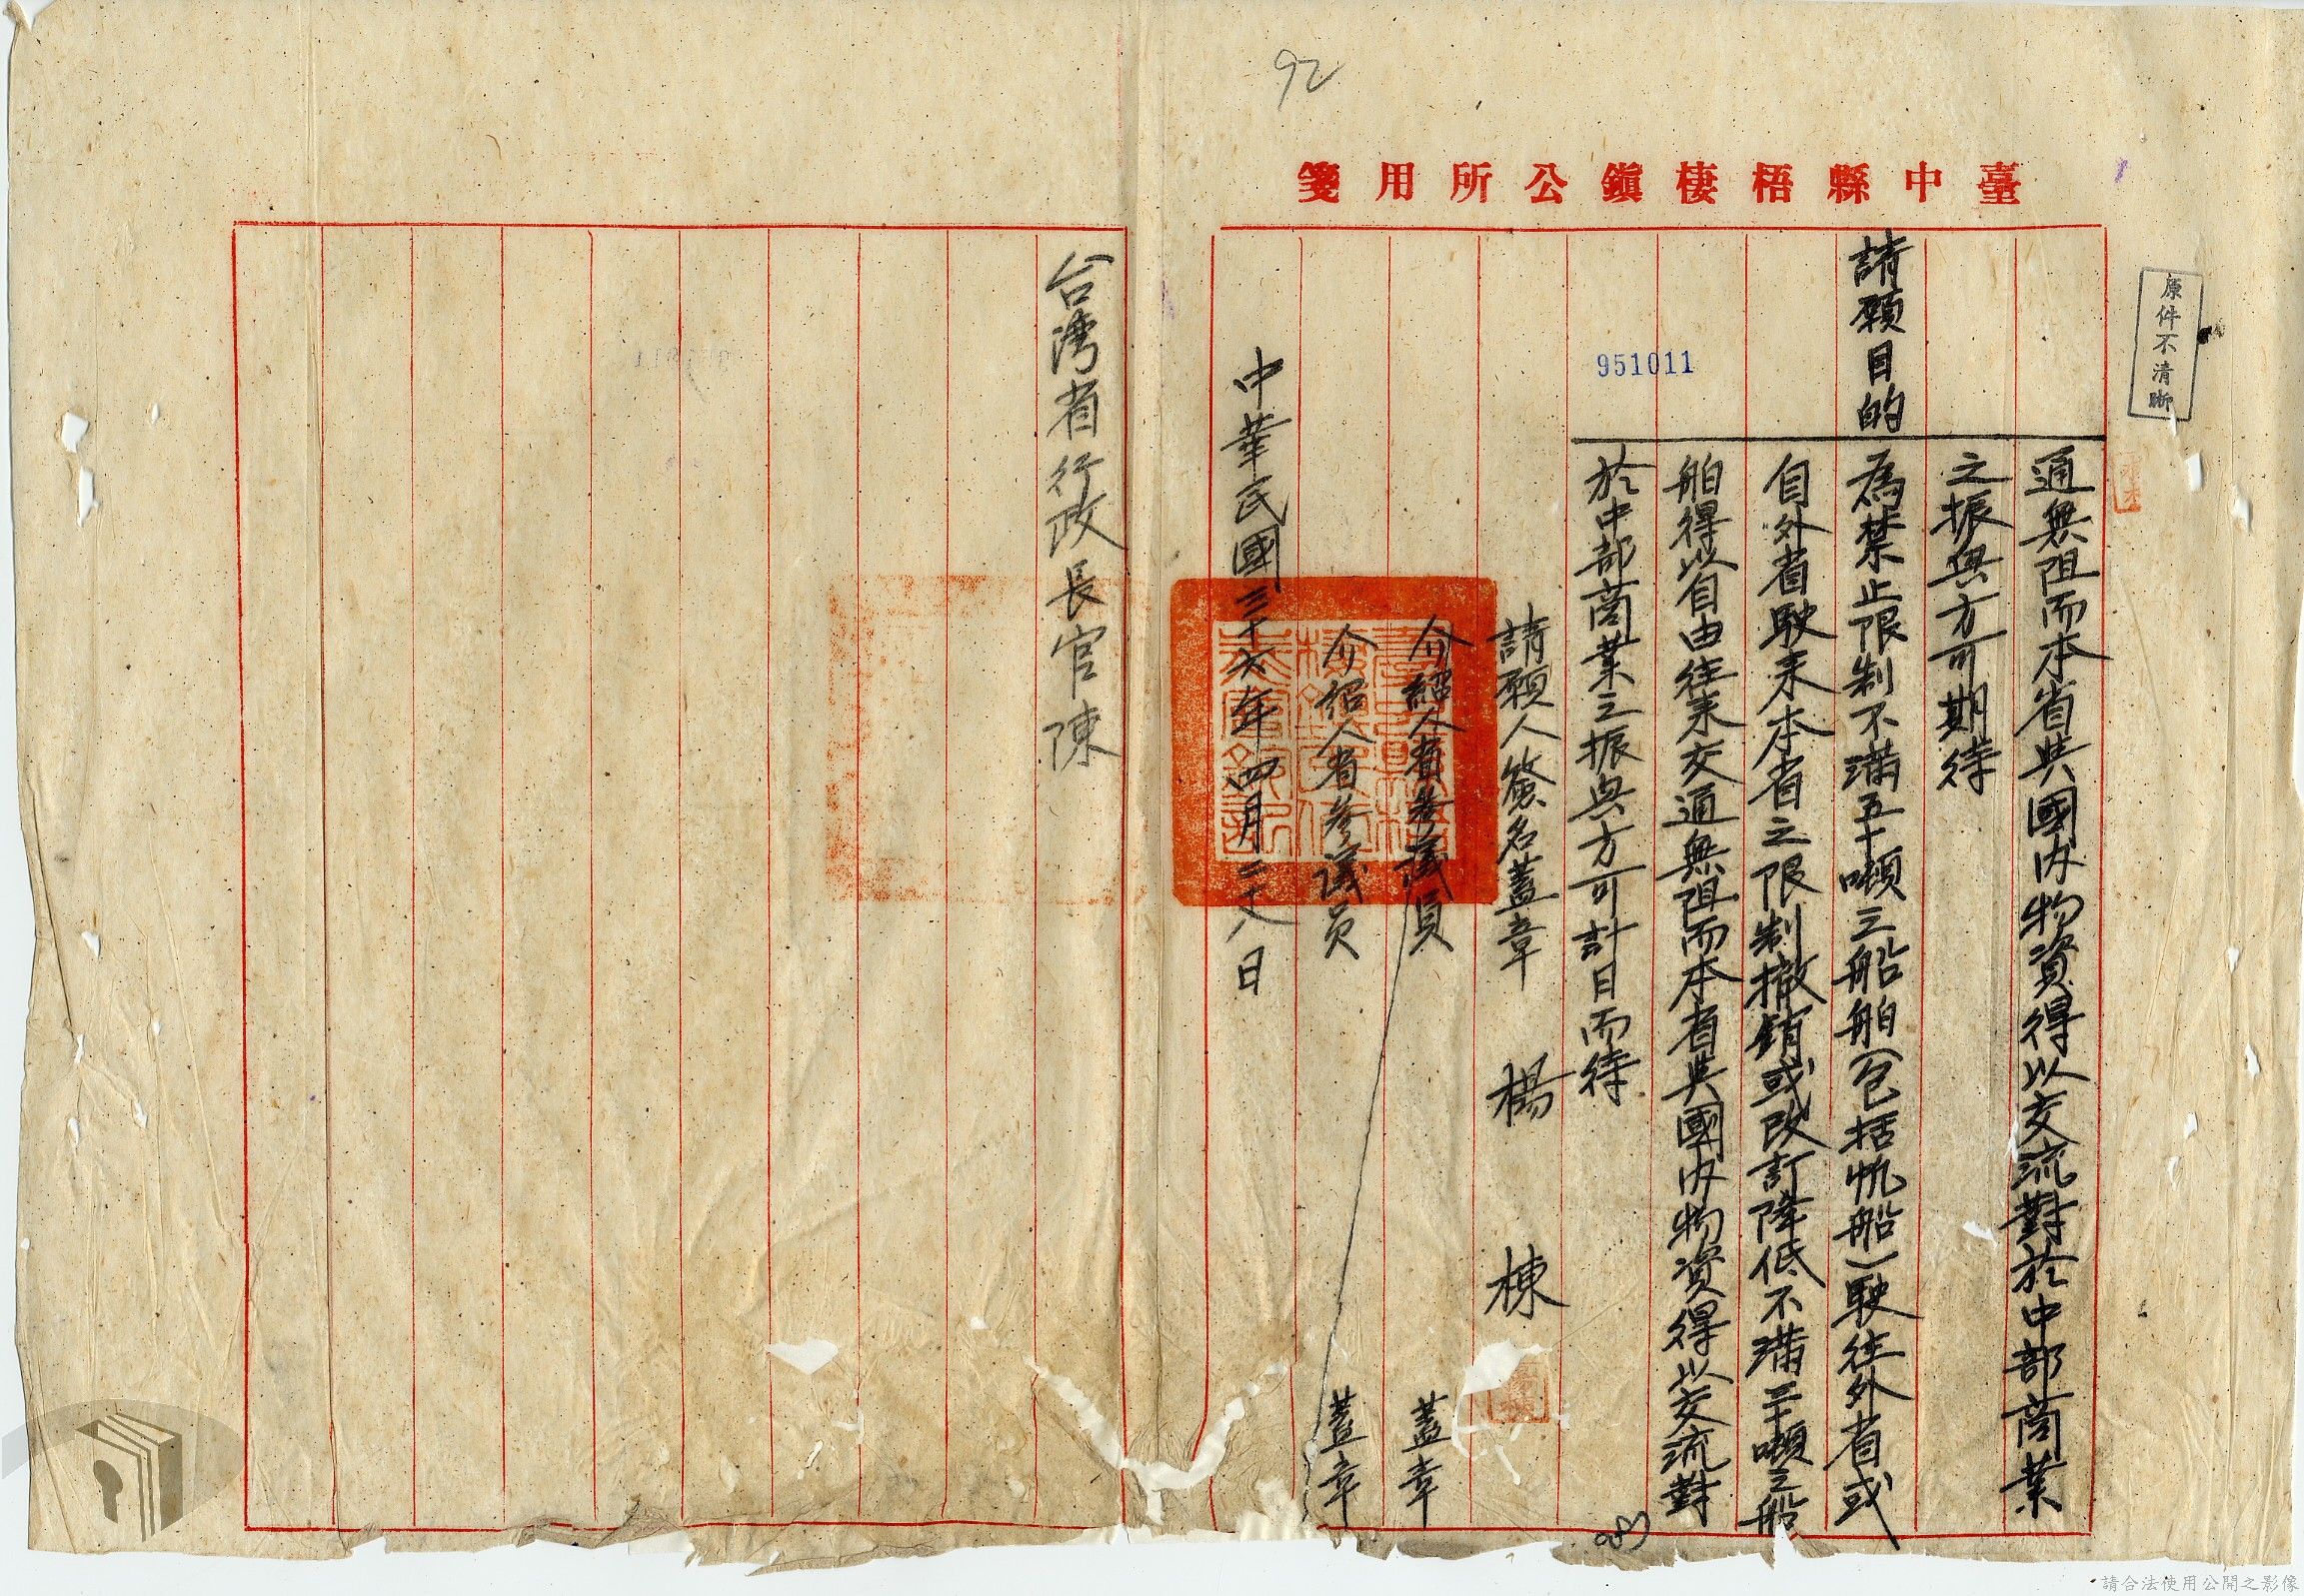 92
臺中縣梧棲鎮公所用箋
原件不清晰
951011
通無阻而本省與國內物資得以交流對於中部商業
之振興方可期待
請願目的
為禁止限制不滿五十噸之船舶(包括帆船)駛往外省或
自外省駛来本省之限制撤銷或改訂降低不滿三十噸之船
舶得以自由往来交通無阻而本省與國內物資得以交流對
於中部商業之振興方可計日而待
請願人簽名蓋章 楊 棟
介紹人省參議員 蓋章
介紹人省參議员 蓋章
中華民國三十六年四月二十八日
台灣省行政長官陳
請合法使用公開之影像